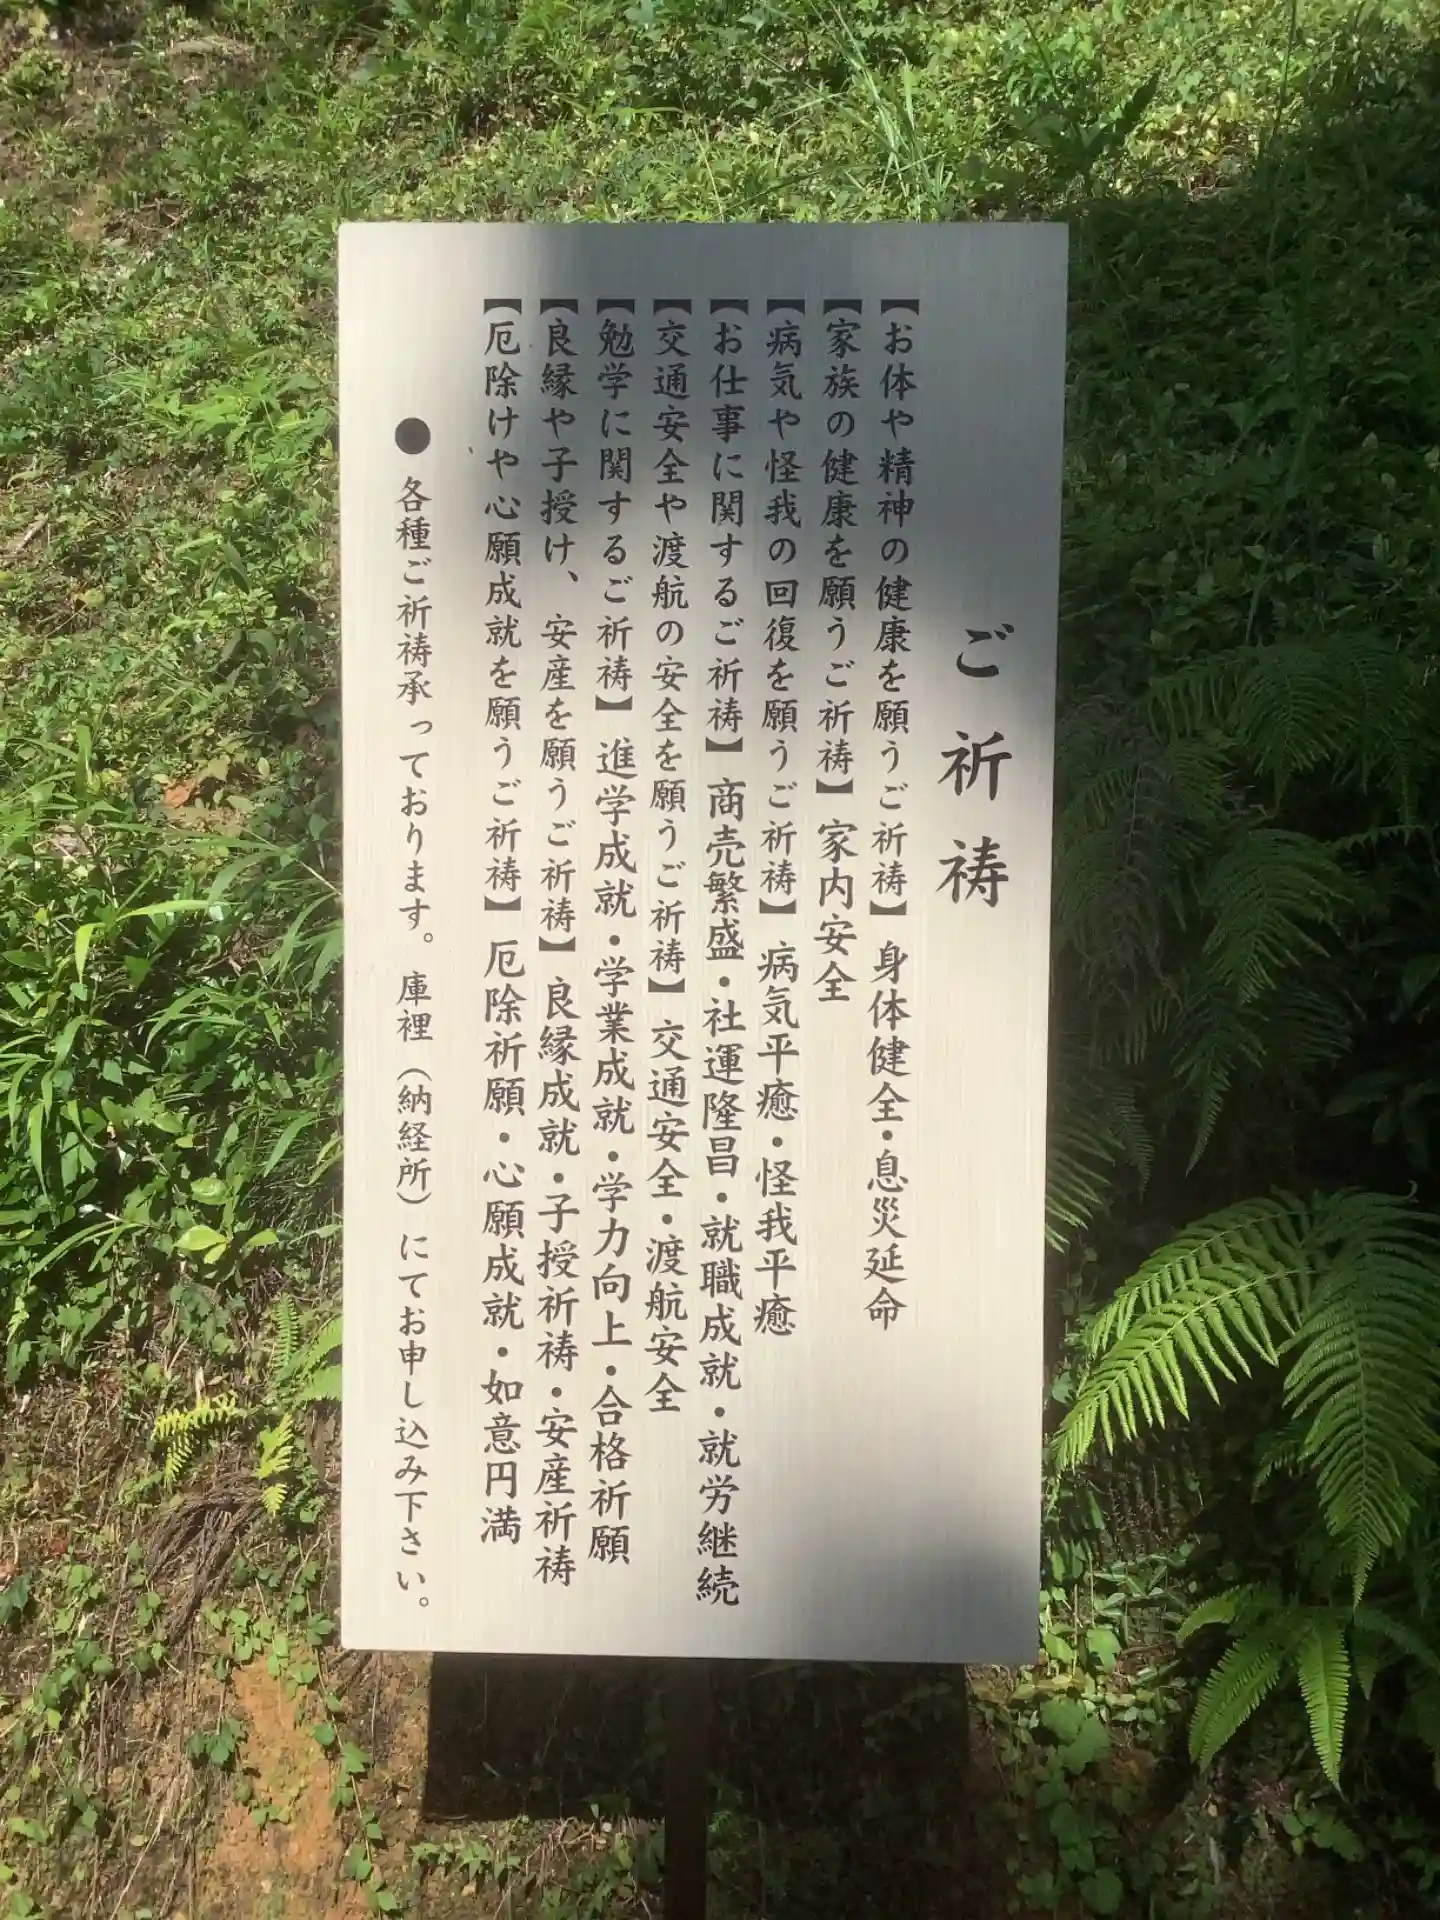 ご祈祷
【お体や精神の健康を願うご祈祷】身体健全・息災延命
【家族の健康を願うご祈祷】家内安全
【病気や怪我の回復を願うご祈祷】病気平癒・怪我平癒
【お仕事に関するご祈祷】商売繁盛・社運隆昌・就職成就・就労継続
【交通安全や渡航の安全を願うご祈祷】交通安全・渡航安全
【勉学に関するご祈祷】進学成就・学業成就・学力向上・合格祈願
【良縁や子授け、安産を願うご祈祷】良縁成就・子授祈祷・安産祈祷
【厄除けや心願成就を願うご祈祷】厄除祈願・心願成就・如意円満
●各種ご祈祷承っております。庫裡（納経所）にてお申し込み下さい。